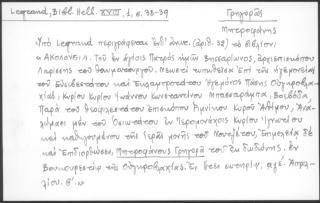 Legrand, Bibl. Hell. XVIII, 1, σ. 38-39
Γρηγορᾶς
Μητροφάνης
Ὑπὸ Legrand περιγράφεται (ἀριθ. 32) τὸ βιβλίον:
« ΑΚΟΛΟΥΘΙΑ. Τοῦ ἐν ἁγίοις Πατρὸς ἡμῶν Βησσαρίωνος, ἀρχιεπισκόπου
Λαρίσσης τοῦ θαυματουργοῦ. Νεωστὶ τυπωθεῖσα Ἐπὶ τῆς ἡγεμονείας
τοῦ Εὐσεβεστάτου καὶ Ἐκλαμπροτάτου Ἡγεμόνος Πάσης Οὑγγροβλαχ-
ίας, Κυρίου Κυρίου Ἰωάννου Κωνσταντίνου Μπασσαράμπα, Βοεβόδα
Παρὰ τοῦ θεοφιλεστάτου ἐπισκόπου Ῥιμνίκου Κυροῦ Ἀνθίμου, Ἀνα-
λώμασι μὲν τοῦ Ὁσιωτάτου ἐν Ἱερομονάχοις Κυρίου Ἰγνατίου
καὶ καθηγουμένου τῆς ἱερᾶς μονῆς τοῦ Νουτζέτου, Ἐπιμελείᾳ δὲ
καὶ Ἐπιδιορθώσει, Μητροφάνους Γρηγορᾶ τοῦ ἐκ Δωδώνης, ἐν
Βουκουρεστίῳ τῆς Οὑγγροβλαχίας. Ἐν ἔτει σωτηρίῳ, Ἀπρι-
λίου.